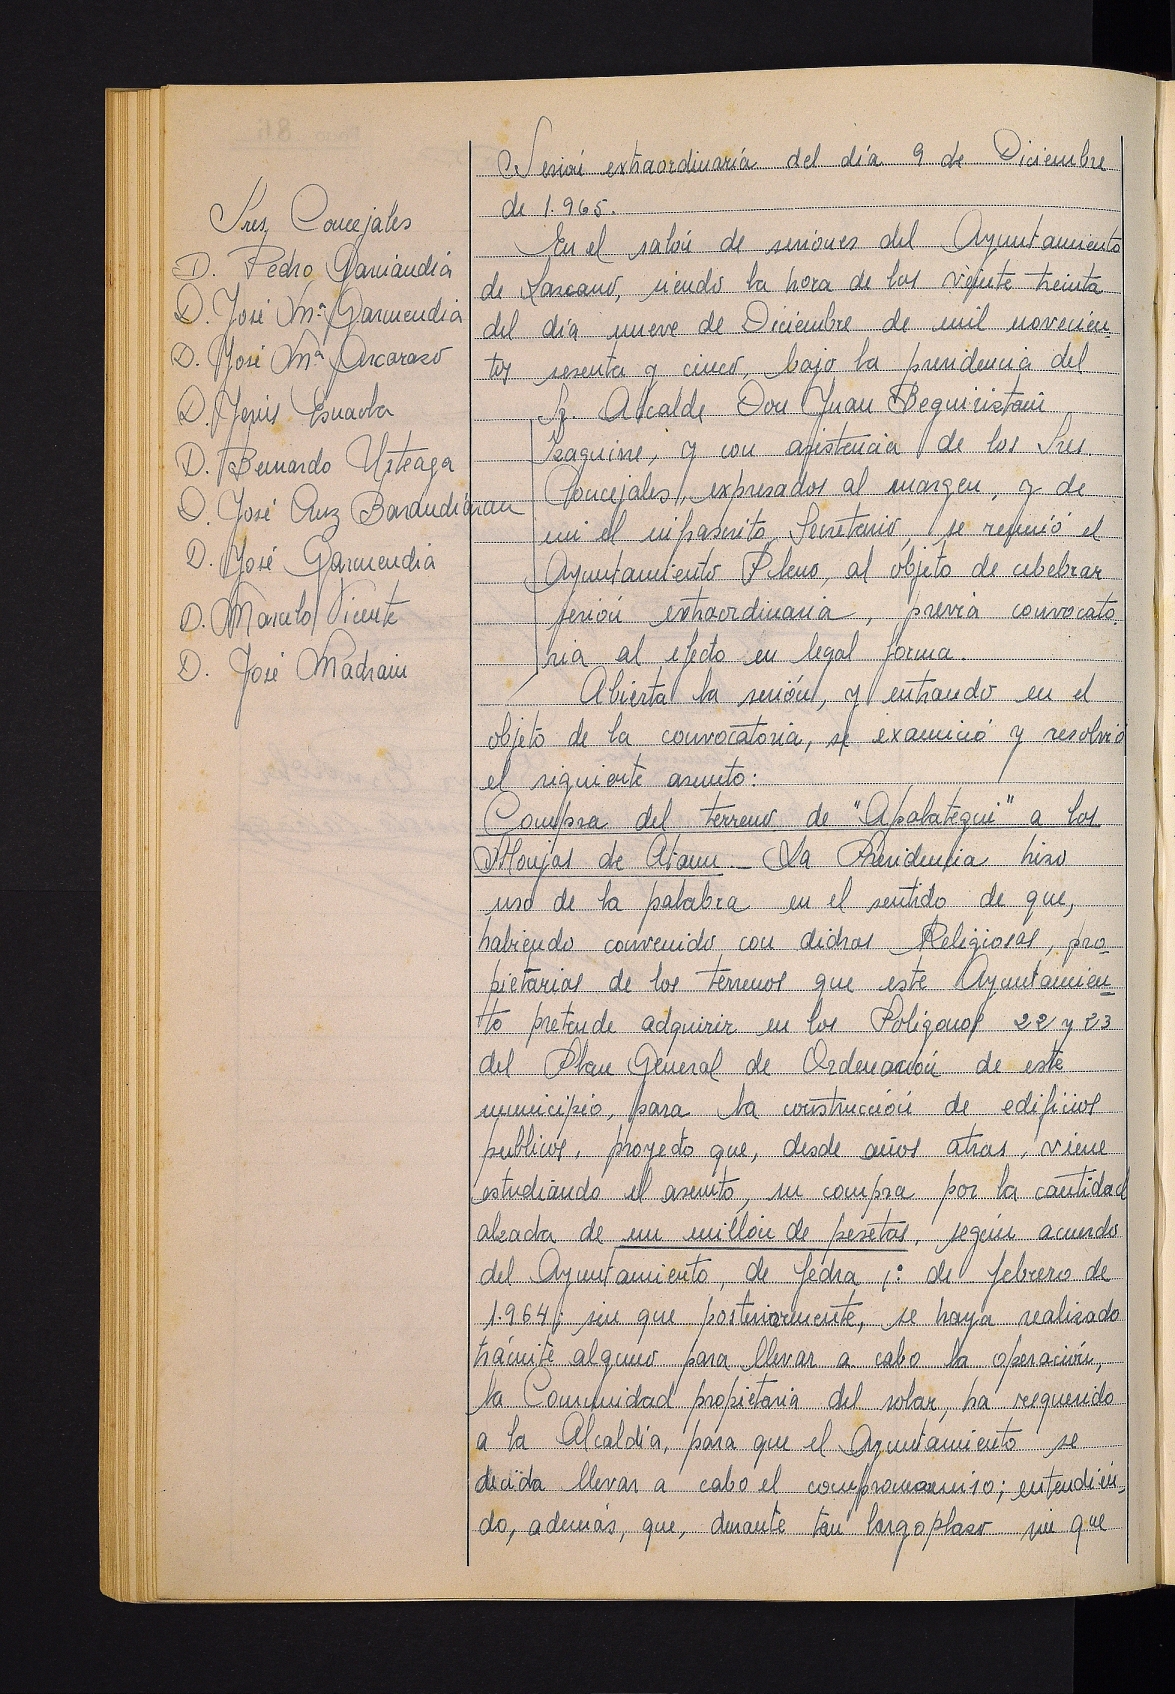 Sesión extraordinaria del día 9 de Diciembre
de 1.965.
Sres. Concejales
D. Pedro Garciandia
D. José Mª Garmendia
D. José Mª Ascaraso
D. Jesús Esnaola
D. Bernardo Urteaga
D. José Cruz Barandiaran
D. José Garmendia
D. Marcelo Vicente
D. José Madrain
En el salón de sesiones del Ayuntamiento
de Lazcano, siendo la hora de las veinte treinta
del día nueve de Diciembre de mil novecien-
tos sesenta y cinco, bajo la presidencia del
Sr. Alcalde Don Juan Beguiristain
Izaguirre, y con asistencia de los Sres.
Concejales, expresados al margen, y de
mi el infrascrito Secretario, se reunió el
Ayuntamiento Pleno, al objeto de celebrar
sesión extraordinaria, previa convocato-
ria al efecto en legal forma.
Abierta la sesión, y entrando en el
objeto de la convocatoria, se examinó y resolvió
el siguiente asunto:
Compra del terreno de "Apalategui" a las
Monjas de Ataun.- La Presidencia hizo
uso de la palabra en el sentido de que,
habiendo convenido con dichas Religiosas, pro-
pietarias de los terrenos que este Ayuntamien-
to pretende adquirir en los Poligonos 22 y 23
del Plan General de Ordenación de este
municipio, para la construcción de edificios
publicos, proyecto que, desde años atras, viene
estudiando el asunto, su compra por la cantidad
alzada de un millón de pesetas, según acuerdo
del Ayuntamiento, de fecha 1º de febrero de
1.964; sin que posteriormente, se haya realizado
trámite alguno para llevar a cabo la operación,
la Comunidad propietaria del solar, ha requerido
a la Alcaldía, para que el Ayuntamiento se
decida llevar a cabo el compromiso; entendién-
do, además, que, durante tan largo plazo sin que